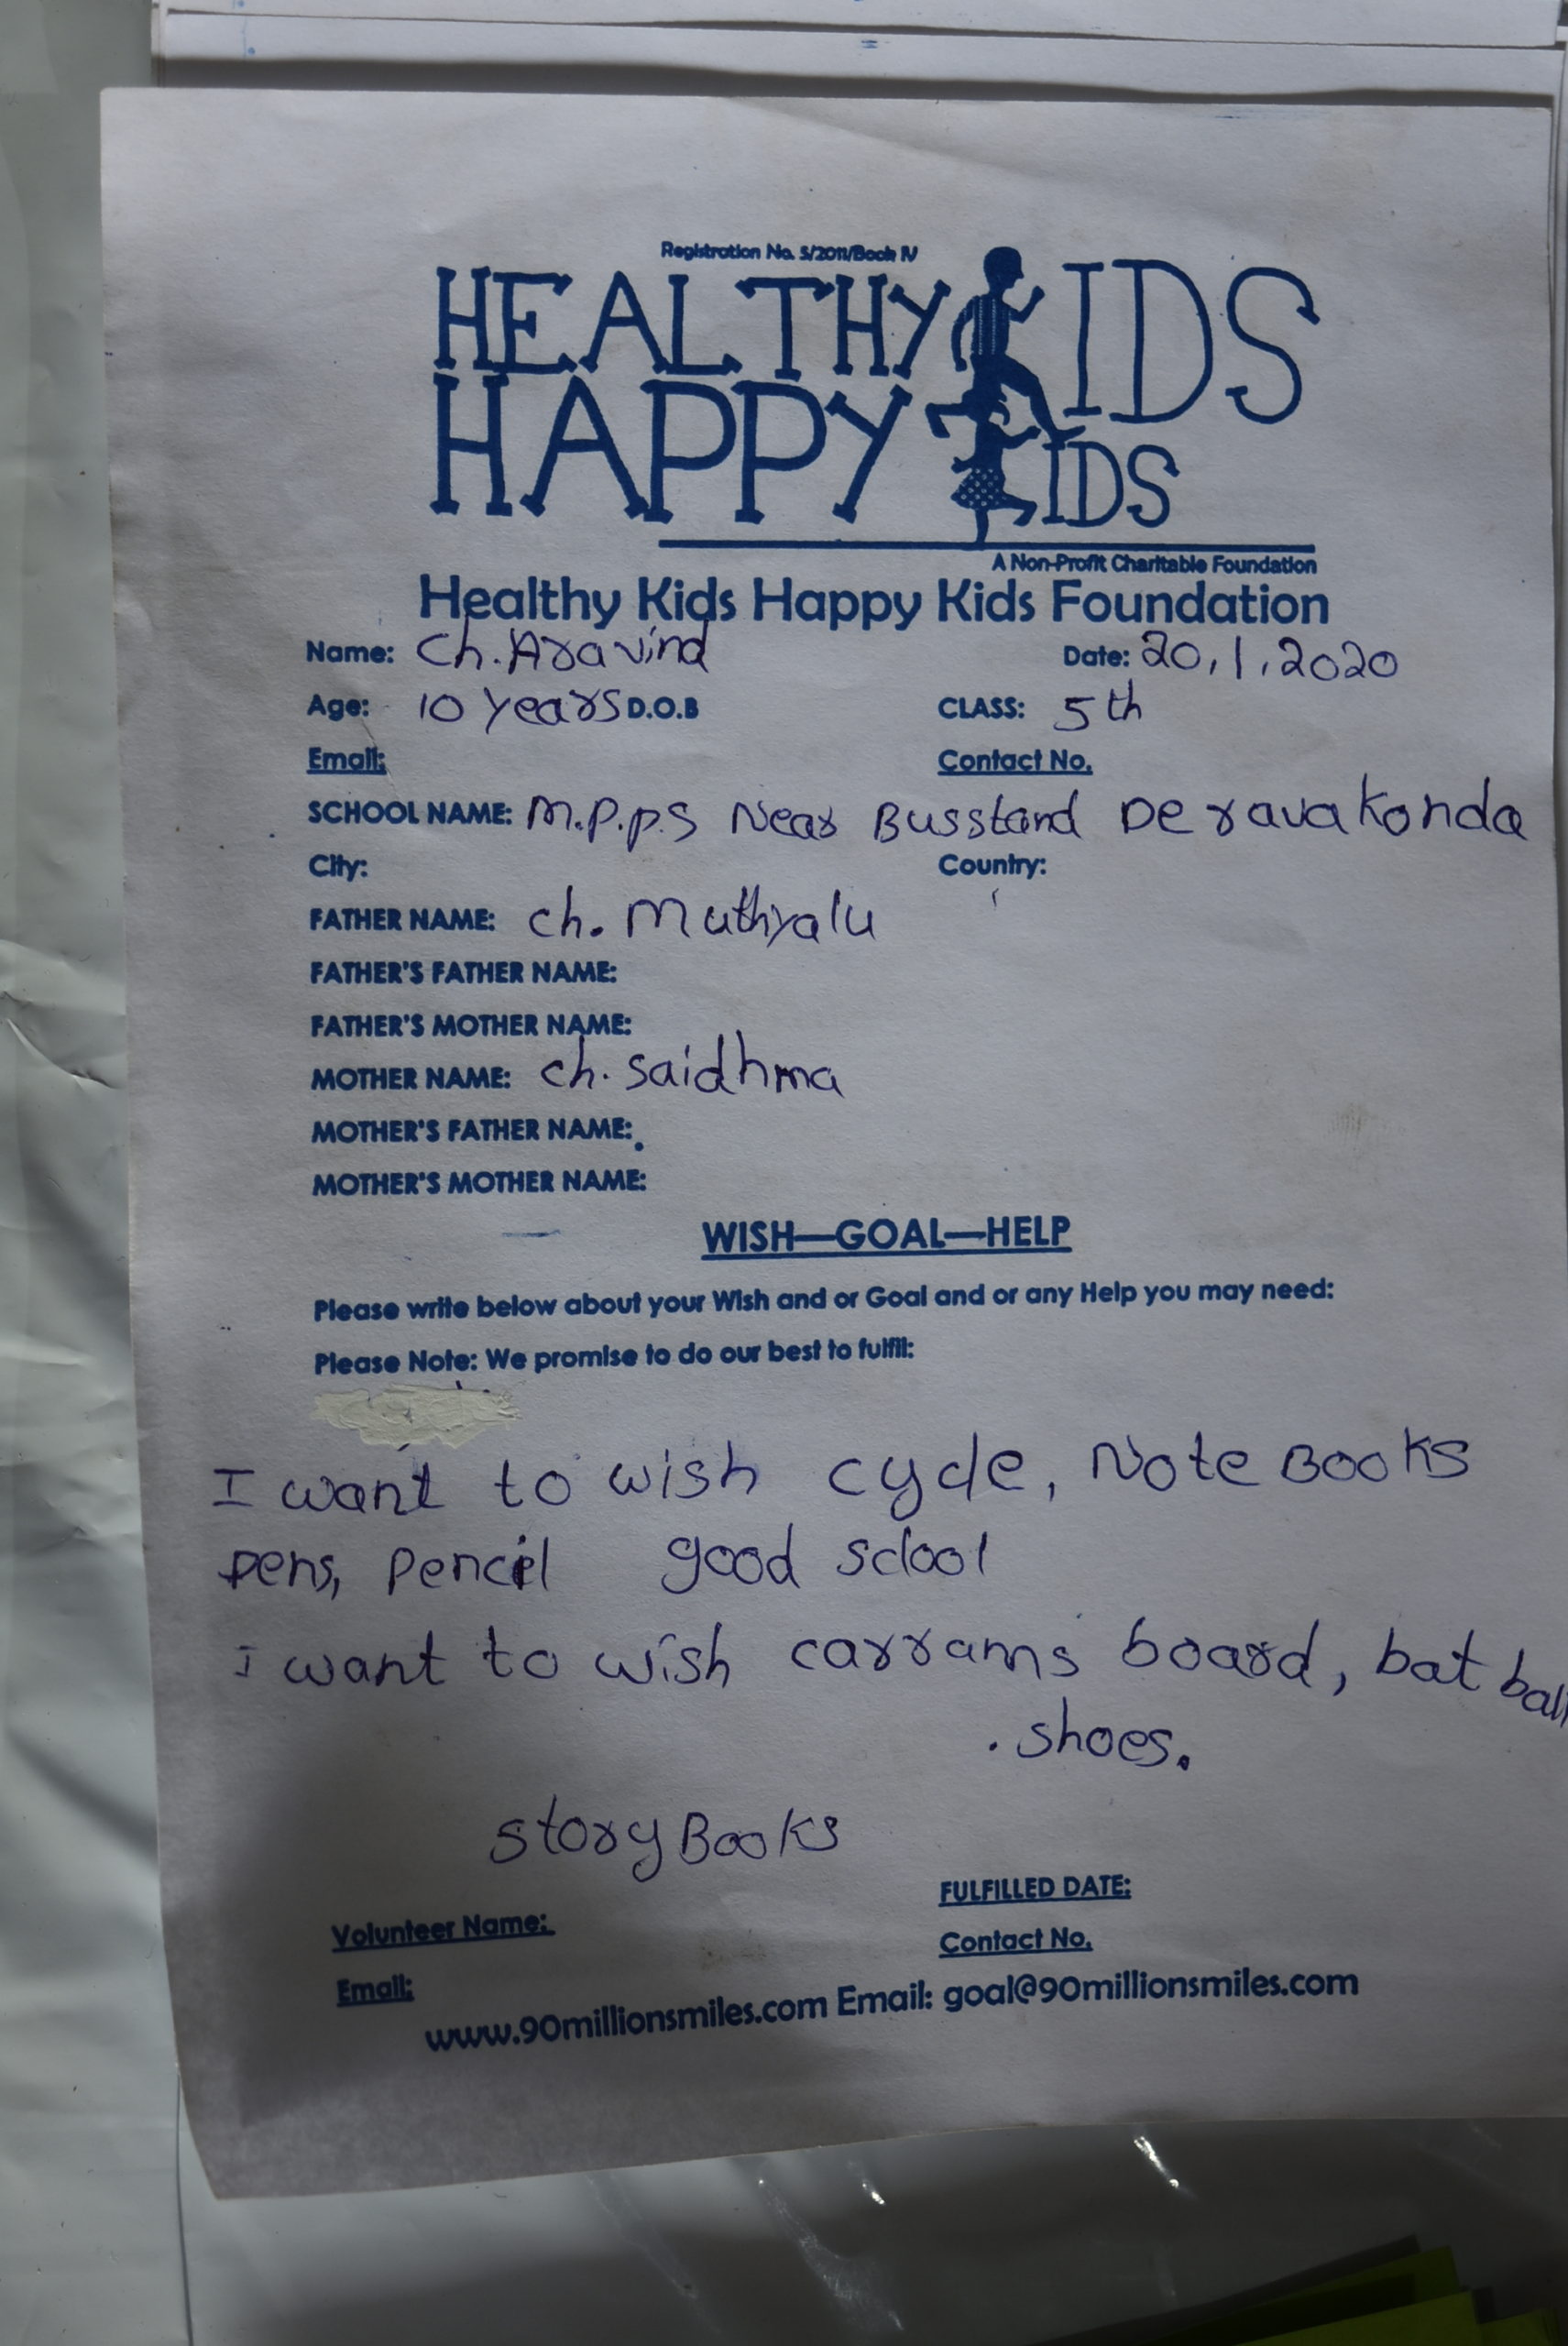 Registration No. 5/2011/Book IV
HEALTHY KIDS
HAPPY KIDS
A Non-Profit Charitable Foundation
Healthy Kids Happy Kids Foundation
Name: Ch. Aravind Date: 20.1.2020
Age: 10 years D.O.B CLASS: 5th
Email: Contact No.
SCHOOL NAME: M.P.P.S Near Busstand Deravakonda
City: Country:
FATHER NAME: ch. Muthyalu
FATHER'S FATHER NAME:
FATHER'S MOTHER NAME:
MOTHER NAME: ch. saidhma
MOTHER'S FATHER NAME:
MOTHER'S MOTHER NAME:
WISH—GOAL—HELP
Please write below about your Wish and or Goal and or any Help you may need:
Please Note: We promise to do our best to fulfil:
I want to wish cycle, Note Books
pens, pencil good sclool
I want to wish carrams board, bat ball
shoes.
story Books
FULFILLED DATE:
Volunteer Name:
Contact No.
Email:
www.90millionsmiles.com Email: goal@90millionsmiles.com